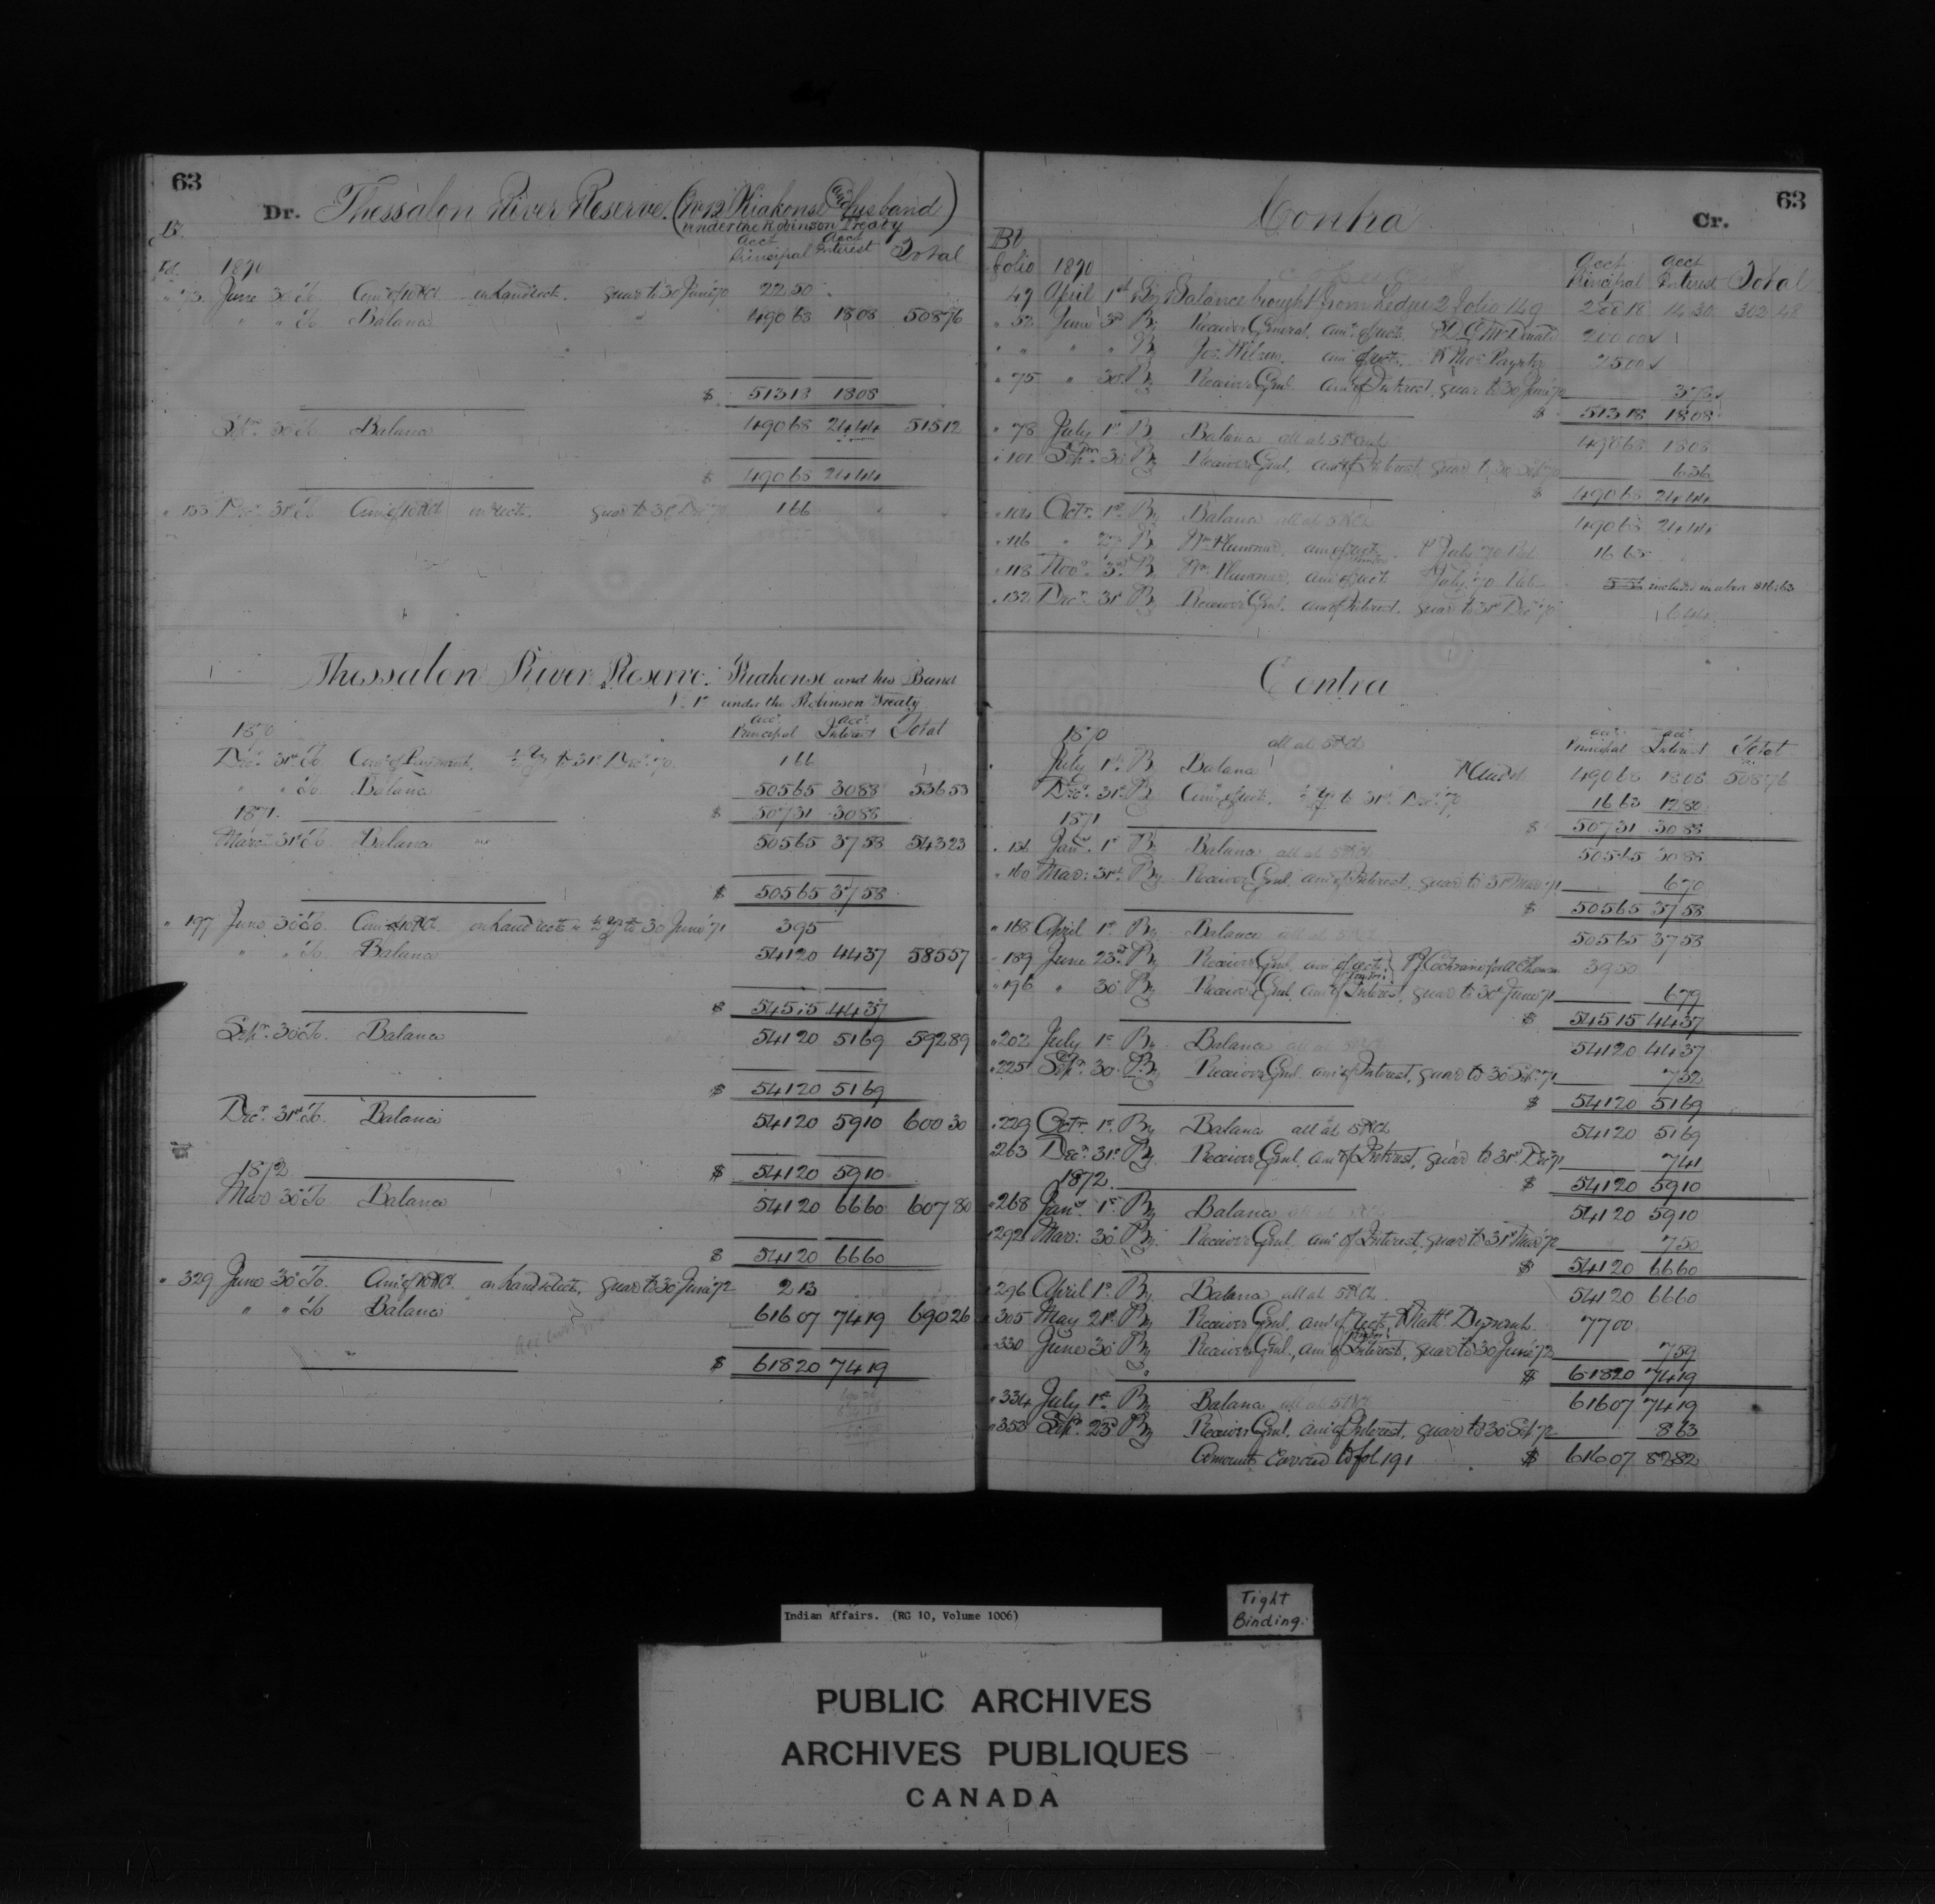 63
Dr. Thessalon River Reserve. (No 12 Kiakonse and his band)
under the Robinson Treaty
Bt.
Acct Principal Acct Interest Total
Fol. 1870
" 73 June 30 To Com of 10 P Ct on Land collect. quar to 30 June 70 22 50
" " To Balance 490 68 18 08 508 76
$ 513 18 18 08
Sepr. 30 To Balance 490 68 24 44 515 12
$ 490 68 24 44
" 133 Decr. 31st To Com of 10 P Ct on collects. quar to 31 Decr 70 1 66
Thessalon River Reserve. Kiakonse and his Band
under the Robinson Treaty
1870 acct. Principal acct. Interest Total
Decr. 31st To ½ Yr to 31st Decr. 70. 1 66
" " To Balance 505 65 30 88 536 53
1871. $ 507 31 30 88
Mar: 31st To Balance 505 65 37 58 543 23
$ 505 65 37 58
" 197 June 30 To Com 10 P Ct on Land collects ½ Yr to 30 June '71 3 95
" " To Balance 541 20 44 37 585 57
$ 545 15 44 37
Sepr. 30 To Balance 541 20 51 69 592 89
$ 541 20 51 69
Decr. 31st To Balance 541 20 59 10 600 30
1872 $ 541 20 59 10
Mar 30 To Balance 541 20 66 60 607 80
$ 541 20 66 60
" 329 June 30 To Amt of 10 P Ct on Land collects, quar to 30 June '72 2 13
" " To Balance 616 07 74 19 690 26
$ 618 20 74 19
63
Contra Cr.
Bt
folio 1870 Acct Principal Acct Interest Total
49 April 1st By Balance brought from Ledger 2 Folio 149 288 18 14 30 302 48
" 52 June 3d By Receiver General, amt. of collt. 200 00 ✓
" " " " By Jos. Wilson. amt of collt. 25 00 ✓
" 75 " 30. By Receiver Genl amt of Interest, quar to 30 June '70 3 78 ✓
$ 513 18 18 08
" 78 July 1st By Balance all at 5 P Cent 490 68 18 08
" 101 Sepr. 30 By Receiver Genl, amt of Interest quar to 30 Sepr 70 6 36
$ 490 68 24 44
" 104 Octr. 1st By Balance all at 5 P Ct 490 68 24 44
" 116 " 27 By Wm Plummer, amt of collt. P July 70 Ret 16 63
" 118 Novr. 3d By Wm. Plummer, amt of collt July 70 Ret included in above $16.63
" 132 Decr. 31st By Receiver Genl. amt of Interest. quar to 31st Decr 70 6 44
Contra
1870 all at 5 P Ct acct. Principal acct. Interest Total
July 1st By Balance 490 68 18 08 508 76
Decr. 31st By Amt of collt. ½ Yr to 31st Decr. 70, 16 63 12 80
1871 $ 507 31 30 88
" 136 Jany. 1st By Balance all at 5 P Ct 505 65 30 88
" 160 Mar: 31st By Receiver Genl, amt of Interest, quar to 31st Mar '71 6 70
$ 505 65 37 58
" 168 April 1st By Balance all at 5 P Ct 505 65 37 58
" 189 June 23d By Receiver Genl, amt of collt. P J Cochrane for 39 50
" 196 " 30 By Receiver Genl, amt of Interest, quar to 30 June '71 6 79
$ 545 15 44 37
" 202 July 1st By Balance all at 5 P Ct 541 20 44 37
" 225 Sepr. 30 By Receiver Genl. amt of Interest, quar to 30 Sep. '71 7 32
$ 541 20 51 69
" 229 Octr. 1st By Balance all at 5 P Ct 541 20 51 69
263 Decr. 31st By Receiver Genl, amt of Interest, quar to 31st Dec '71 7 41
1872. $ 541 20 59 10
" 268 Jany. 1st By Balance all at 5 P Ct 541 20 59 10
" 292 Mar: 30 By Receiver Genl, amt of Interest, quar to 31st Mar '72 7 50
$ 541 20 66 60
" 296 April 1st By Balance all at 5 P Ct 541 20 66 60
" 305 May 21st By Receiver Genl, amt of collt. 77 00
" 330 June 30 By Receiver Genl, amt of Interest, quar to 30 June '72 7 59
$ 618 20 74 19
" 334 July 1st By Balance all at 5 P Ct 616 07 74 19
" 353 Sepr. 23d By Receiver Genl, amt of Interest, quar to 30 Sep '72 8 63
Amount Carried to fol 191 $ 616 07 82 82
Indian Affairs. (RG 10, Volume 1006)
Tight
Binding.
PUBLIC ARCHIVES
ARCHIVES PUBLIQUES
CANADA